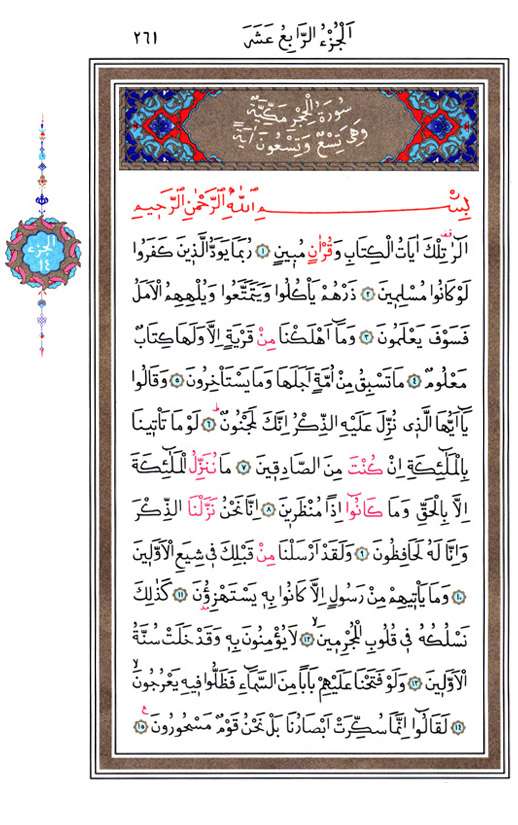 اَلْجُزْءُ الرَّابِعُ عَشَرَ
٢٦١
سُورَةُ الْحِجْرِ مَكِّيَّةٌ
وَهِيَ تِسْعٌ وَتِسْعُونَ اٰيَةً
الجزء
١٤
بِسْمِ اللّٰهِ الرَّحْمٰنِ الرَّحٖيمِ
الٓرٰ تِلْكَ اٰيَاتُ الْكِتَابِ وَقُرْاٰنٍ مُبٖينٍ ﴿١﴾ رُبَمَا يَوَدُّ الَّذٖينَ كَفَرُوا
لَوْ كَانُوا مُسْلِمٖينَ ﴿٢﴾ ذَرْهُمْ يَأْكُلُوا وَيَتَمَتَّعُوا وَيُلْهِهِمُ الْاَمَلُ
فَسَوْفَ يَعْلَمُونَ ﴿٣﴾ وَمَٓا اَهْلَكْنَا مِنْ قَرْيَةٍ اِلَّا وَلَهَا كِتَابٌ
مَعْلُومٌ ﴿٤﴾ مَا تَسْبِقُ مِنْ اُمَّةٍ اَجَلَهَا وَمَا يَسْتَأْخِرُونَ ﴿٥﴾ وَقَالُوا
يَٓا اَيُّهَا الَّذٖى نُزِّلَ عَلَيْهِ الذِّكْرُ اِنَّكَ لَمَجْنُونٌ ﴿٦﴾ لَوْ مَا تَأْتٖينَا
بِالْمَلٰٓئِكَةِ اِنْ كُنْتَ مِنَ الصَّادِقٖينَ ﴿٧﴾ مَا نُنَزِّلُ الْمَلٰٓئِكَةَ
اِلَّا بِالْحَقِّ وَمَا كَانُٓوا اِذًا مُنْظَرٖينَ ﴿٨﴾ اِنَّا نَحْنُ نَزَّلْنَا الذِّكْرَ
وَاِنَّا لَهُ لَحَافِظُونَ ﴿٩﴾ وَلَقَدْ اَرْسَلْنَا مِنْ قَبْلِكَ فٖى شِيَعِ الْاَوَّلٖينَ
﴿١٠﴾ وَمَا يَأْتٖيهِمْ مِنْ رَسُولٍ اِلَّا كَانُوا بِهٖ يَسْتَهْزِؤُنَ ﴿١١﴾ كَذٰلِكَ
نَسْلُكُهُ فٖى قُلُوبِ الْمُجْرِمٖينَ ﴿١٢﴾ لَا يُؤْمِنُونَ بِهٖ وَقَدْ خَلَتْ سُنَّةُ
الْاَوَّلٖينَ ﴿١٣﴾ وَلَوْ فَتَحْنَا عَلَيْهِمْ بَابًا مِنَ السَّمَٓاءِ فَظَلُّوا فٖيهِ يَعْرُجُونَ
﴿١٤﴾ لَقَالُٓوا اِنَّمَا سُكِّرَتْ اَبْصَارُنَا بَلْ نَحْنُ قَوْمٌ مَسْحُورُونَ ﴿١٥﴾